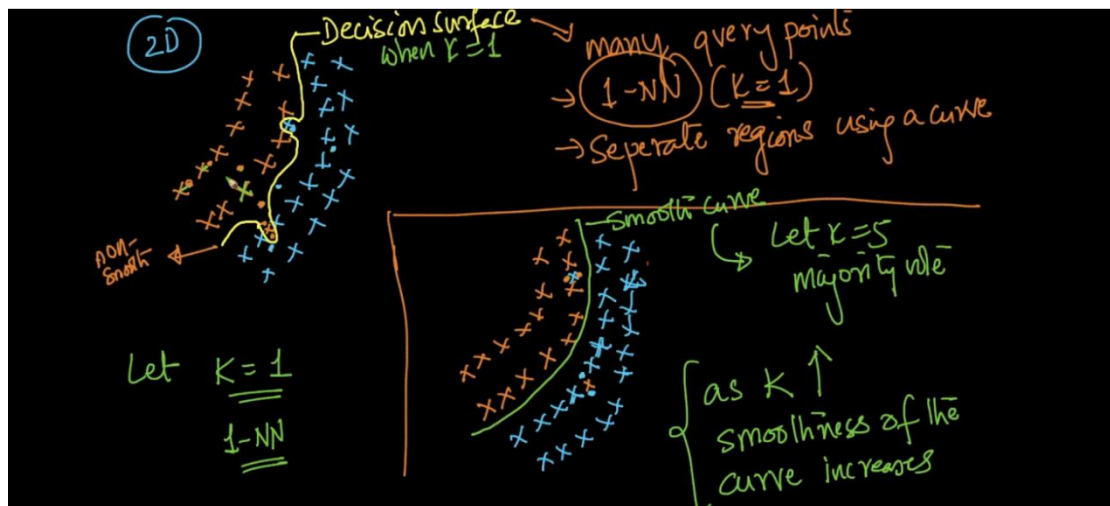 2D
Decision surface
when K=1
→ many query points
→ 1-NN (K=1)
→ Seperate regions using a curve
non-
smooth
Let K=1
1-NN
Smooth curve
Let K=5
majority vote
as K ↑
smoothness of the
curve increases